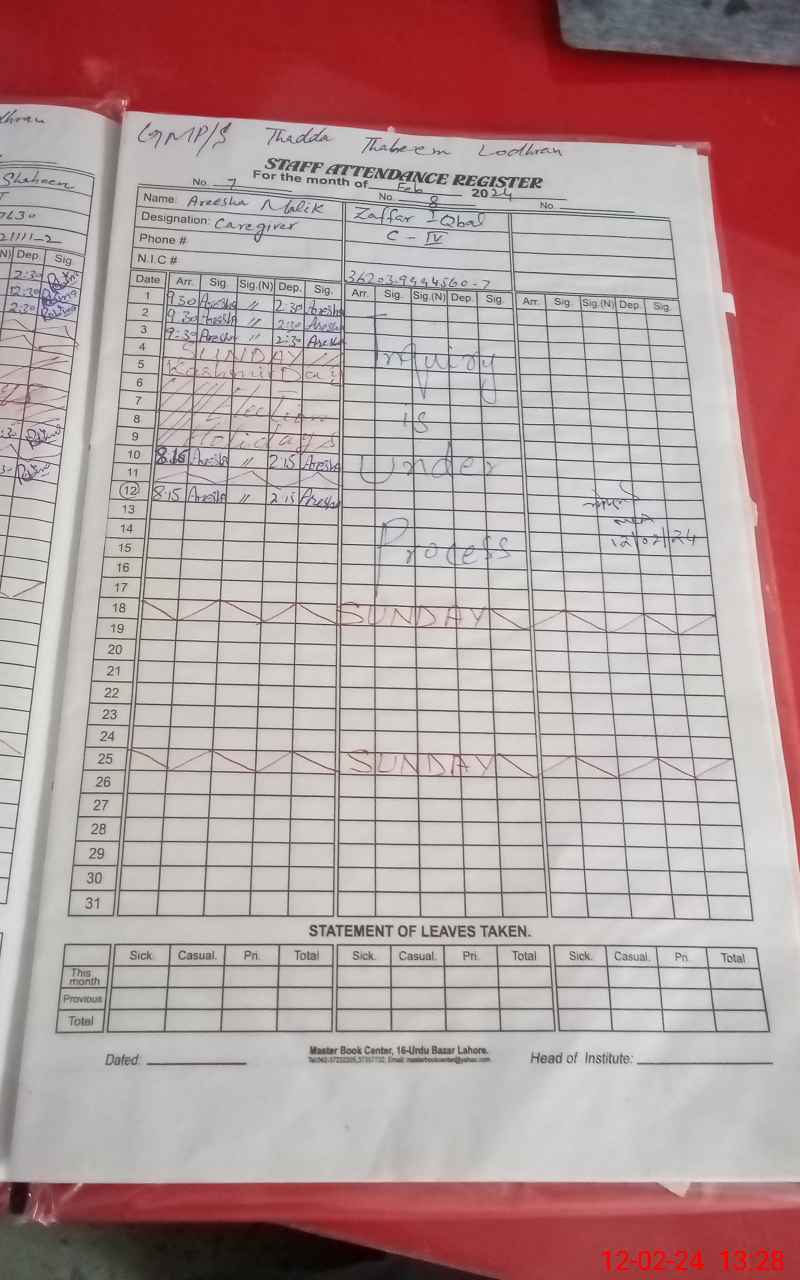 GMP/S Thadda Thaheem Lodhran
STAFF ATTENDANCE REGISTER
For the month of Feb 2024
No. 7 No. 8 No.
Name: Areesha Malik Zaffar Iqbal
Designation: Caregiver C - IV
Phone #
N.I.C #
Date Arr. Sig. Sig.(N) Dep. Sig. Arr. Sig. Sig.(N) Dep. Sig. Arr. Sig. Sig.(N) Dep. Sig.
1 9.30 Areesha " 2:30 Areesha
2 9.30 Areesha " 2:30 Areesha
3 9:30 Areesha " 2:30 Areesha
4 SUNDAY
5 Kashmir Day Inquiry
6
7 Election
8 is
9 Holidays
10 8.15 Areesha " 2:15 Areesha Under
11
12 8.15 Areesha " 2:15 Areesha
13
14 12/02/24
15 Process
16
17
18 SUNDAY
19
20
21
22
23
24
25 SUNDAY
26
27
28
29
30
31
STATEMENT OF LEAVES TAKEN.
Sick. Casual. Pri. Total Sick. Casual. Pri. Total Sick. Casual. Pri. Total
This month
Previous
Total
Dated: Master Book Center, 16-Urdu Bazar Lahore. Head of Institute:
lodhran
Shaheen
7630
21111-2
N) Dep. Sig.
2:30
12:30
2:30
12-02-24 13:28